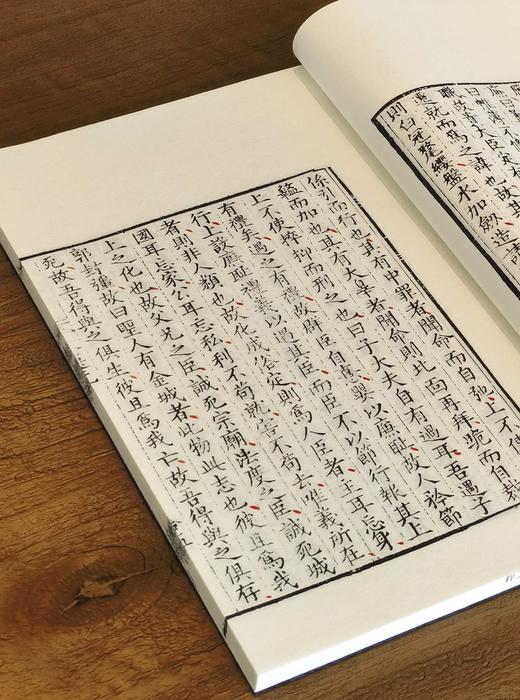 故貴大臣
就而爲之諱也故其
則白冠氂纓盤水加劍造請
係引而行也其有中罪者聞命而自弛上不使
盭而加也其有大辠者聞命則北面再拜跪而自裁
上不使捽抑而刑之也曰子大夫自有過耳吾遇子
有禮矣遇之有禮故群臣自憙嬰以廉恥故人矜節
行上設廉恥禮義以遇其臣而臣不以節行報其上
者則非人類也故化成俗定則爲人臣者主耳忘身
國耳忘家公耳忘私利不苟就害不苟去唯義所在
上之化也故父兄之臣誠死宗廟法度之臣誠死城
郭封疆故曰聖人有金城者比物此志也彼且爲我
死故吾得與之俱生彼且爲我亡故吾得與之俱存